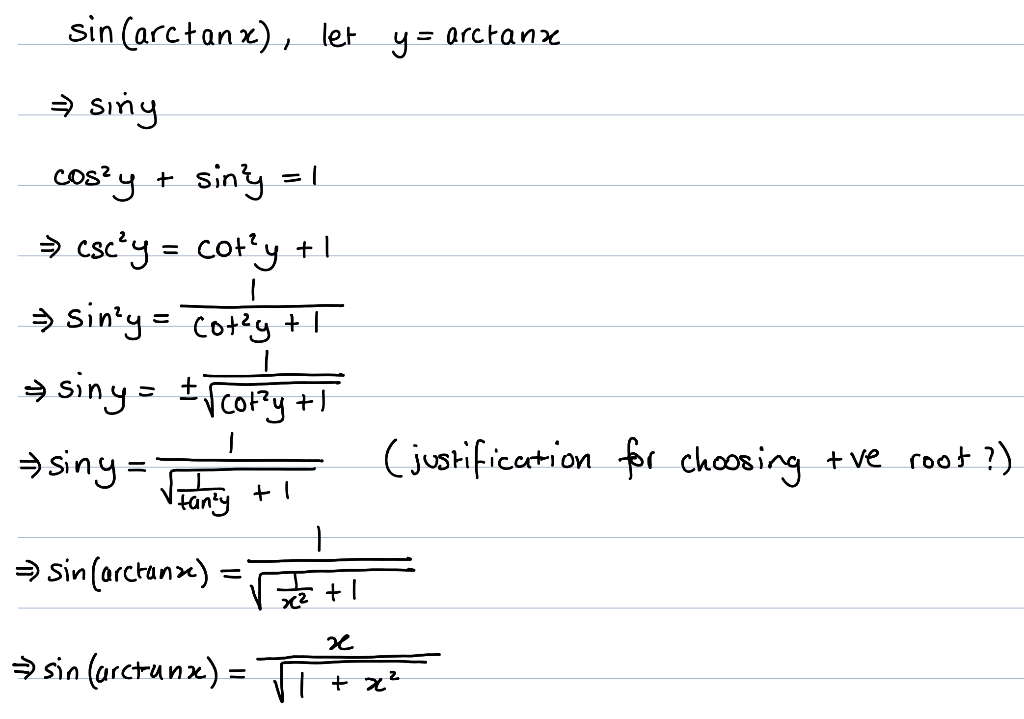 sin(arctanx), let y = arctanx
⇒ siny
cos²y + sin²y = 1
⇒ csc²y = cot²y + 1
⇒ sin²y = 1/(cot²y + 1)
⇒ siny = ± 1/√(cot²y + 1)
⇒ siny = 1/√(1/tan²y + 1) (justification for choosing +ve root?)
⇒ sin(arctanx) = 1/√(1/x² + 1)
⇒ sin(arctanx) = x/√(1 + x²)